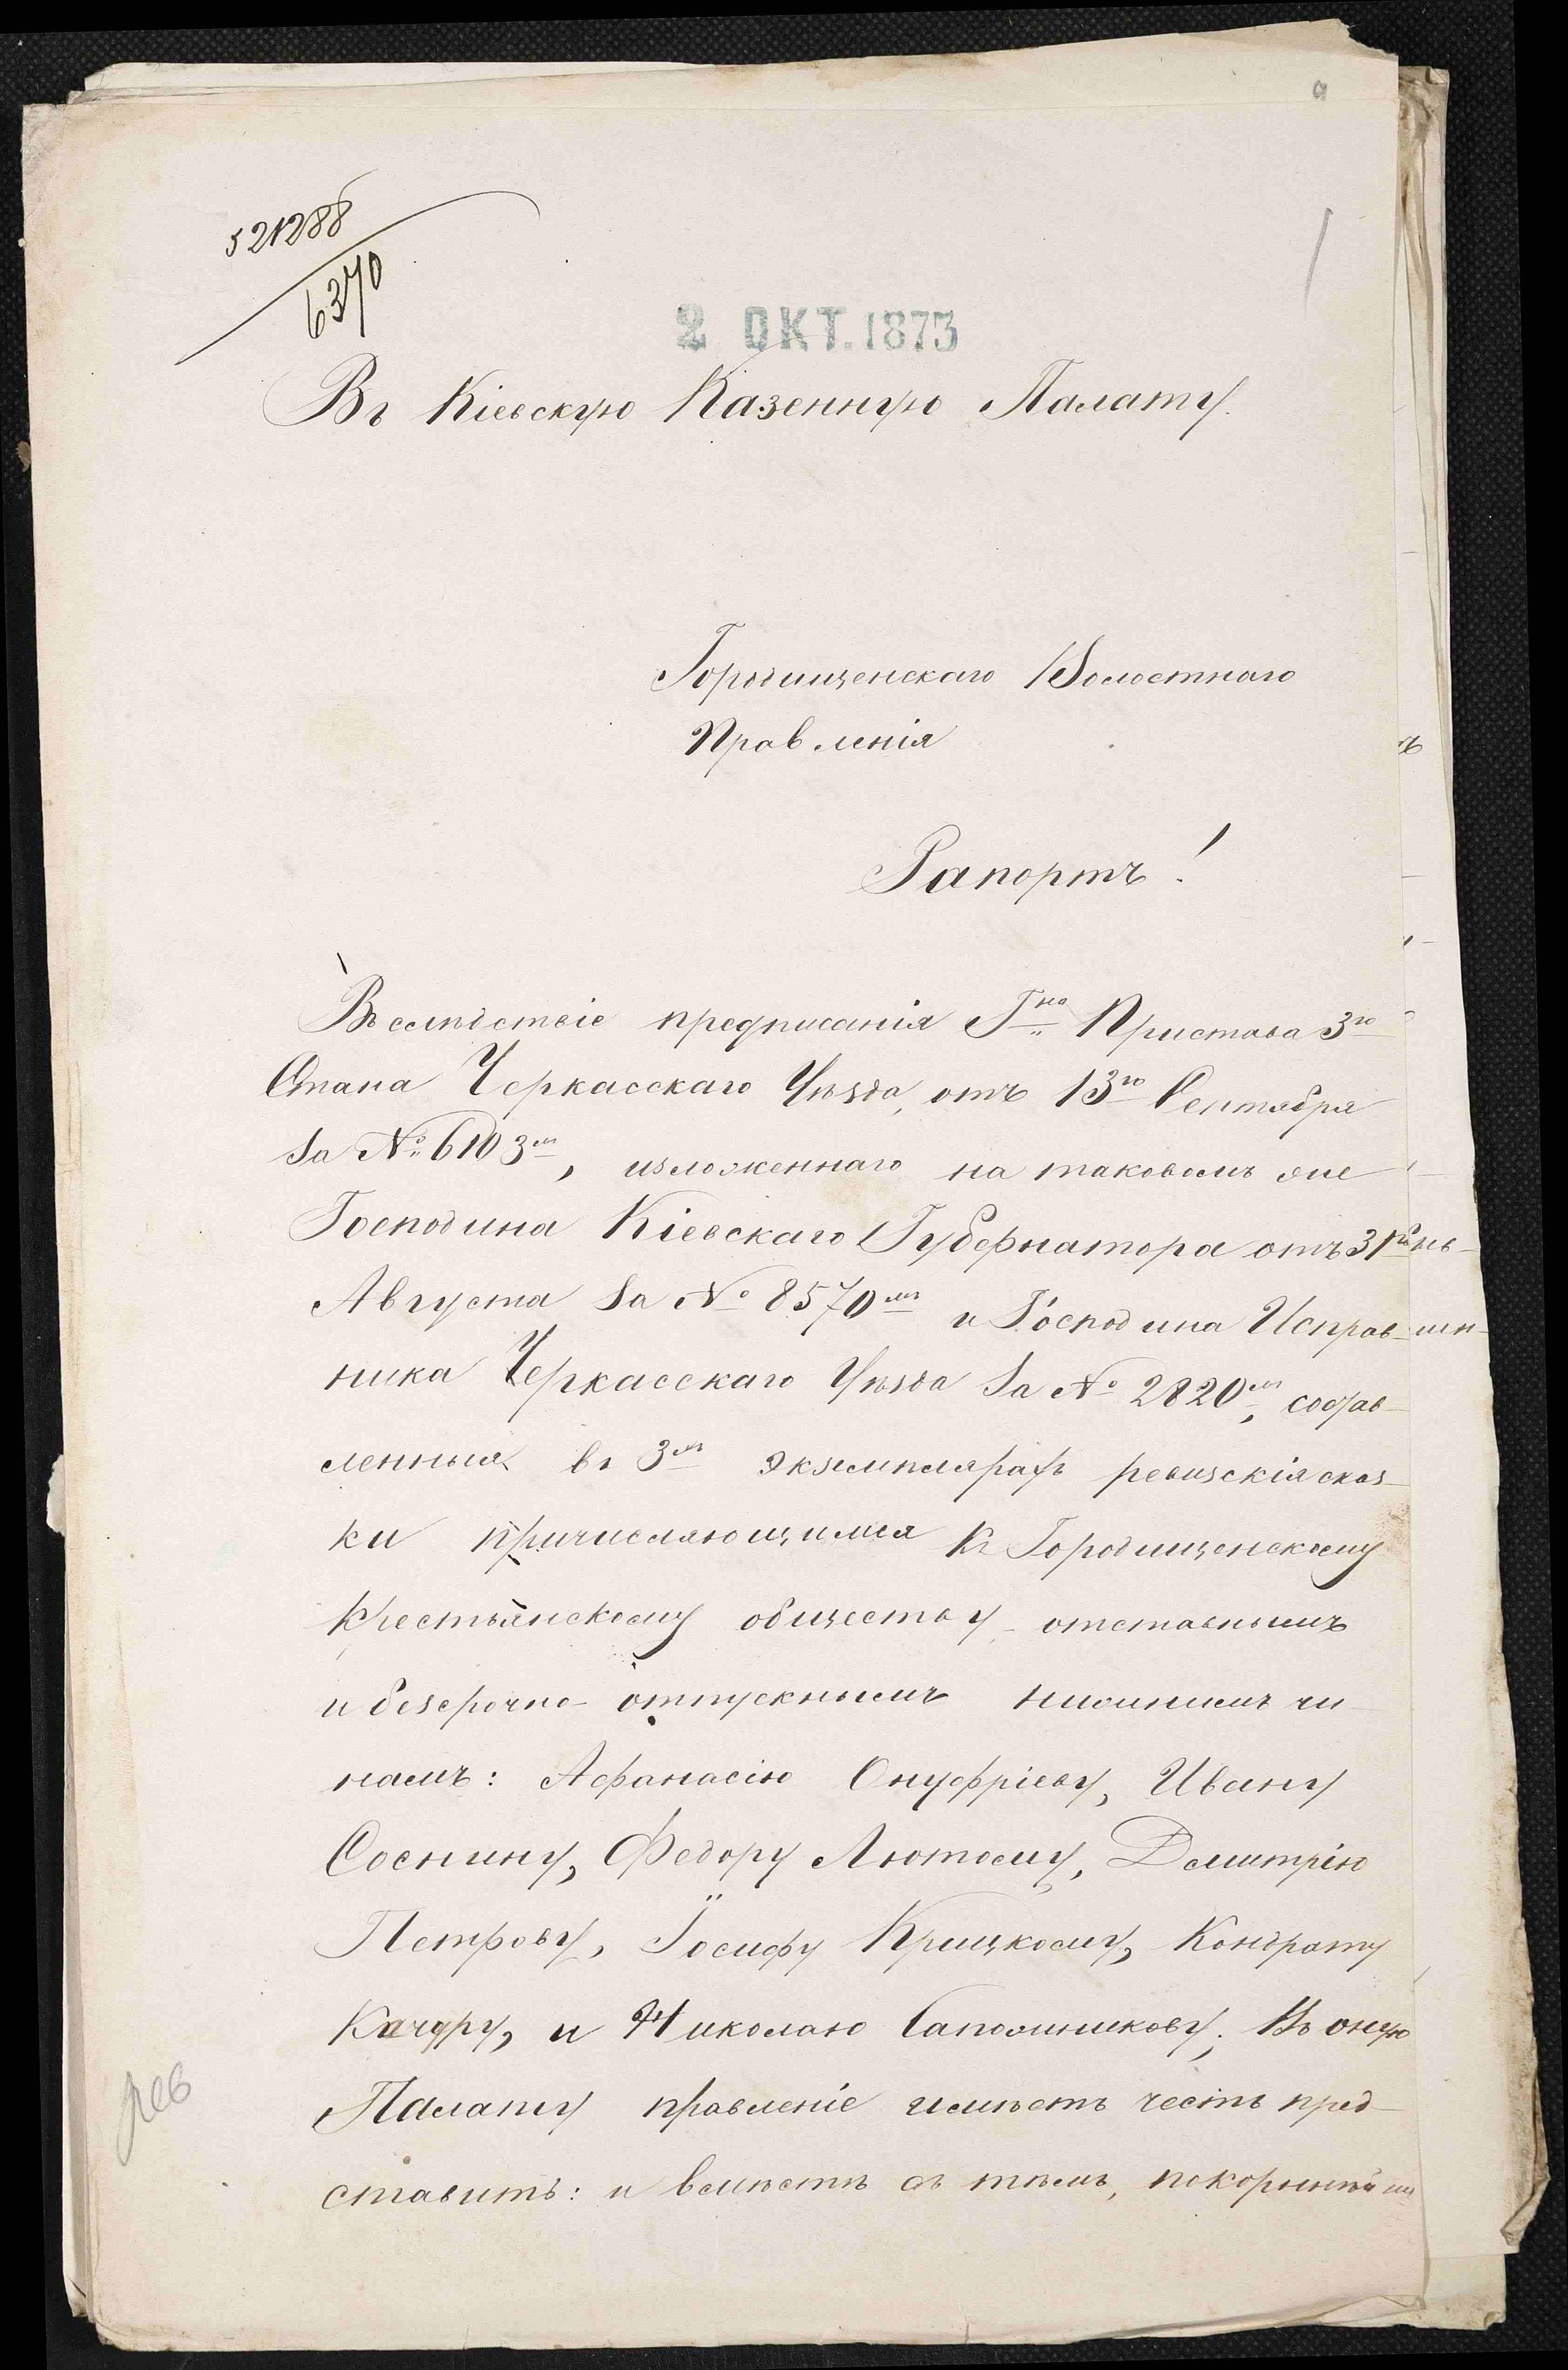 521288
6370
2 ОКТ. 1873
Въ Кіевскую Казенную Палату.
Городищенскаго Волостнаго
Правленія
Рапортъ!
Въ слѣдствіе предписанія Гна Пристава 3го
Стана Черкасскаго Уѣзда, отъ 13го Сентября
за № 6103м, изложеннаго на таковомъ же
Господина Кіевскаго Губернатора отъ 31го
Августа за № 8570м и Господина Исправ-
ника Черкасскаго Уѣзда за № 2820м, состав-
ленныя въ 3м экземплярахъ ревизскія сказ-
ки причисляющимся къ Городищенскому
крестьянскому обществу отставнымъ
и безсрочно-отпускнымъ нижнимъ чи-
намъ: Афанасію Онуфріеву, Ивану
Соснину, Федору Лютому, Дмитрію
Петрову, Іосифу Крицкому, Кондрату
Качуру, и Николаю Сапожникову, Въ оную
Палату правленіе имѣетъ честь пред-
ставить: и вмѣстѣ съ тѣмъ, покорнѣйш